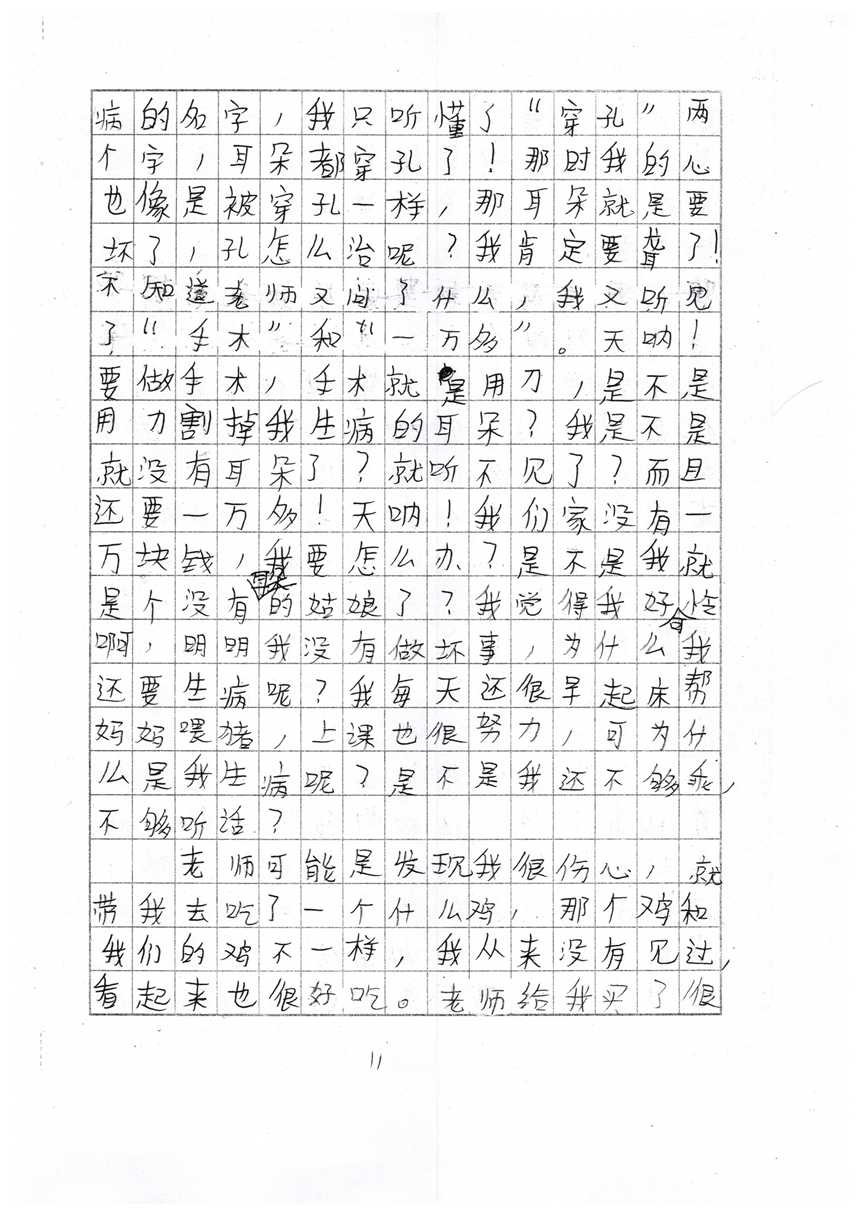 病的名字，我只听懂了“穿孔”两
个字，耳朵都穿孔了！那时我的心
也像是被穿孔一样，那耳朵就是要
坏了，孔怎么治呢？我肯定要聋了！
不知道老师又问了什么，我又听见
了“手术”和“一万多”。天呐！
要做手术，手术就是用刀，是不是
用刀割掉我生病的耳朵？我是不是
就没有耳朵了？就听不见了？而且
还要一万多！天呐！我们家没有一
万块钱，我要怎么办？是不是我就
是个没有耳朵的姑娘了？我觉得我好可怜
啊，明明我没有做坏事，为什么我
还要生病呢？我每天还很早起床帮
妈妈喂猪，上课也很努力，可为什
么是我生病呢？是不是我还不够乖，
不够听话？
老师可能是发现我很伤心，就
带我去吃了一个什么鸡，那个鸡和
我们的鸡不一样，我从来没有见过，
看起来也很好吃。老师给我买了很
11